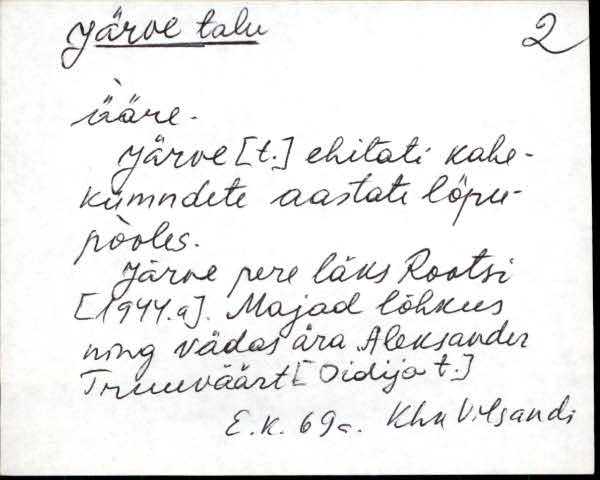 Järve talu
2
ä̀äre.
Järve [t.] ehitati kahe-
kümndete aastate lõpu-
pòoles.
Järve pere läks Rootsi
[1944.a]. Majad lõhkus
ning vädas ära Aleksander
Truuväärt [Oidija t.]
E.K. 69a. Khn Vilsandi